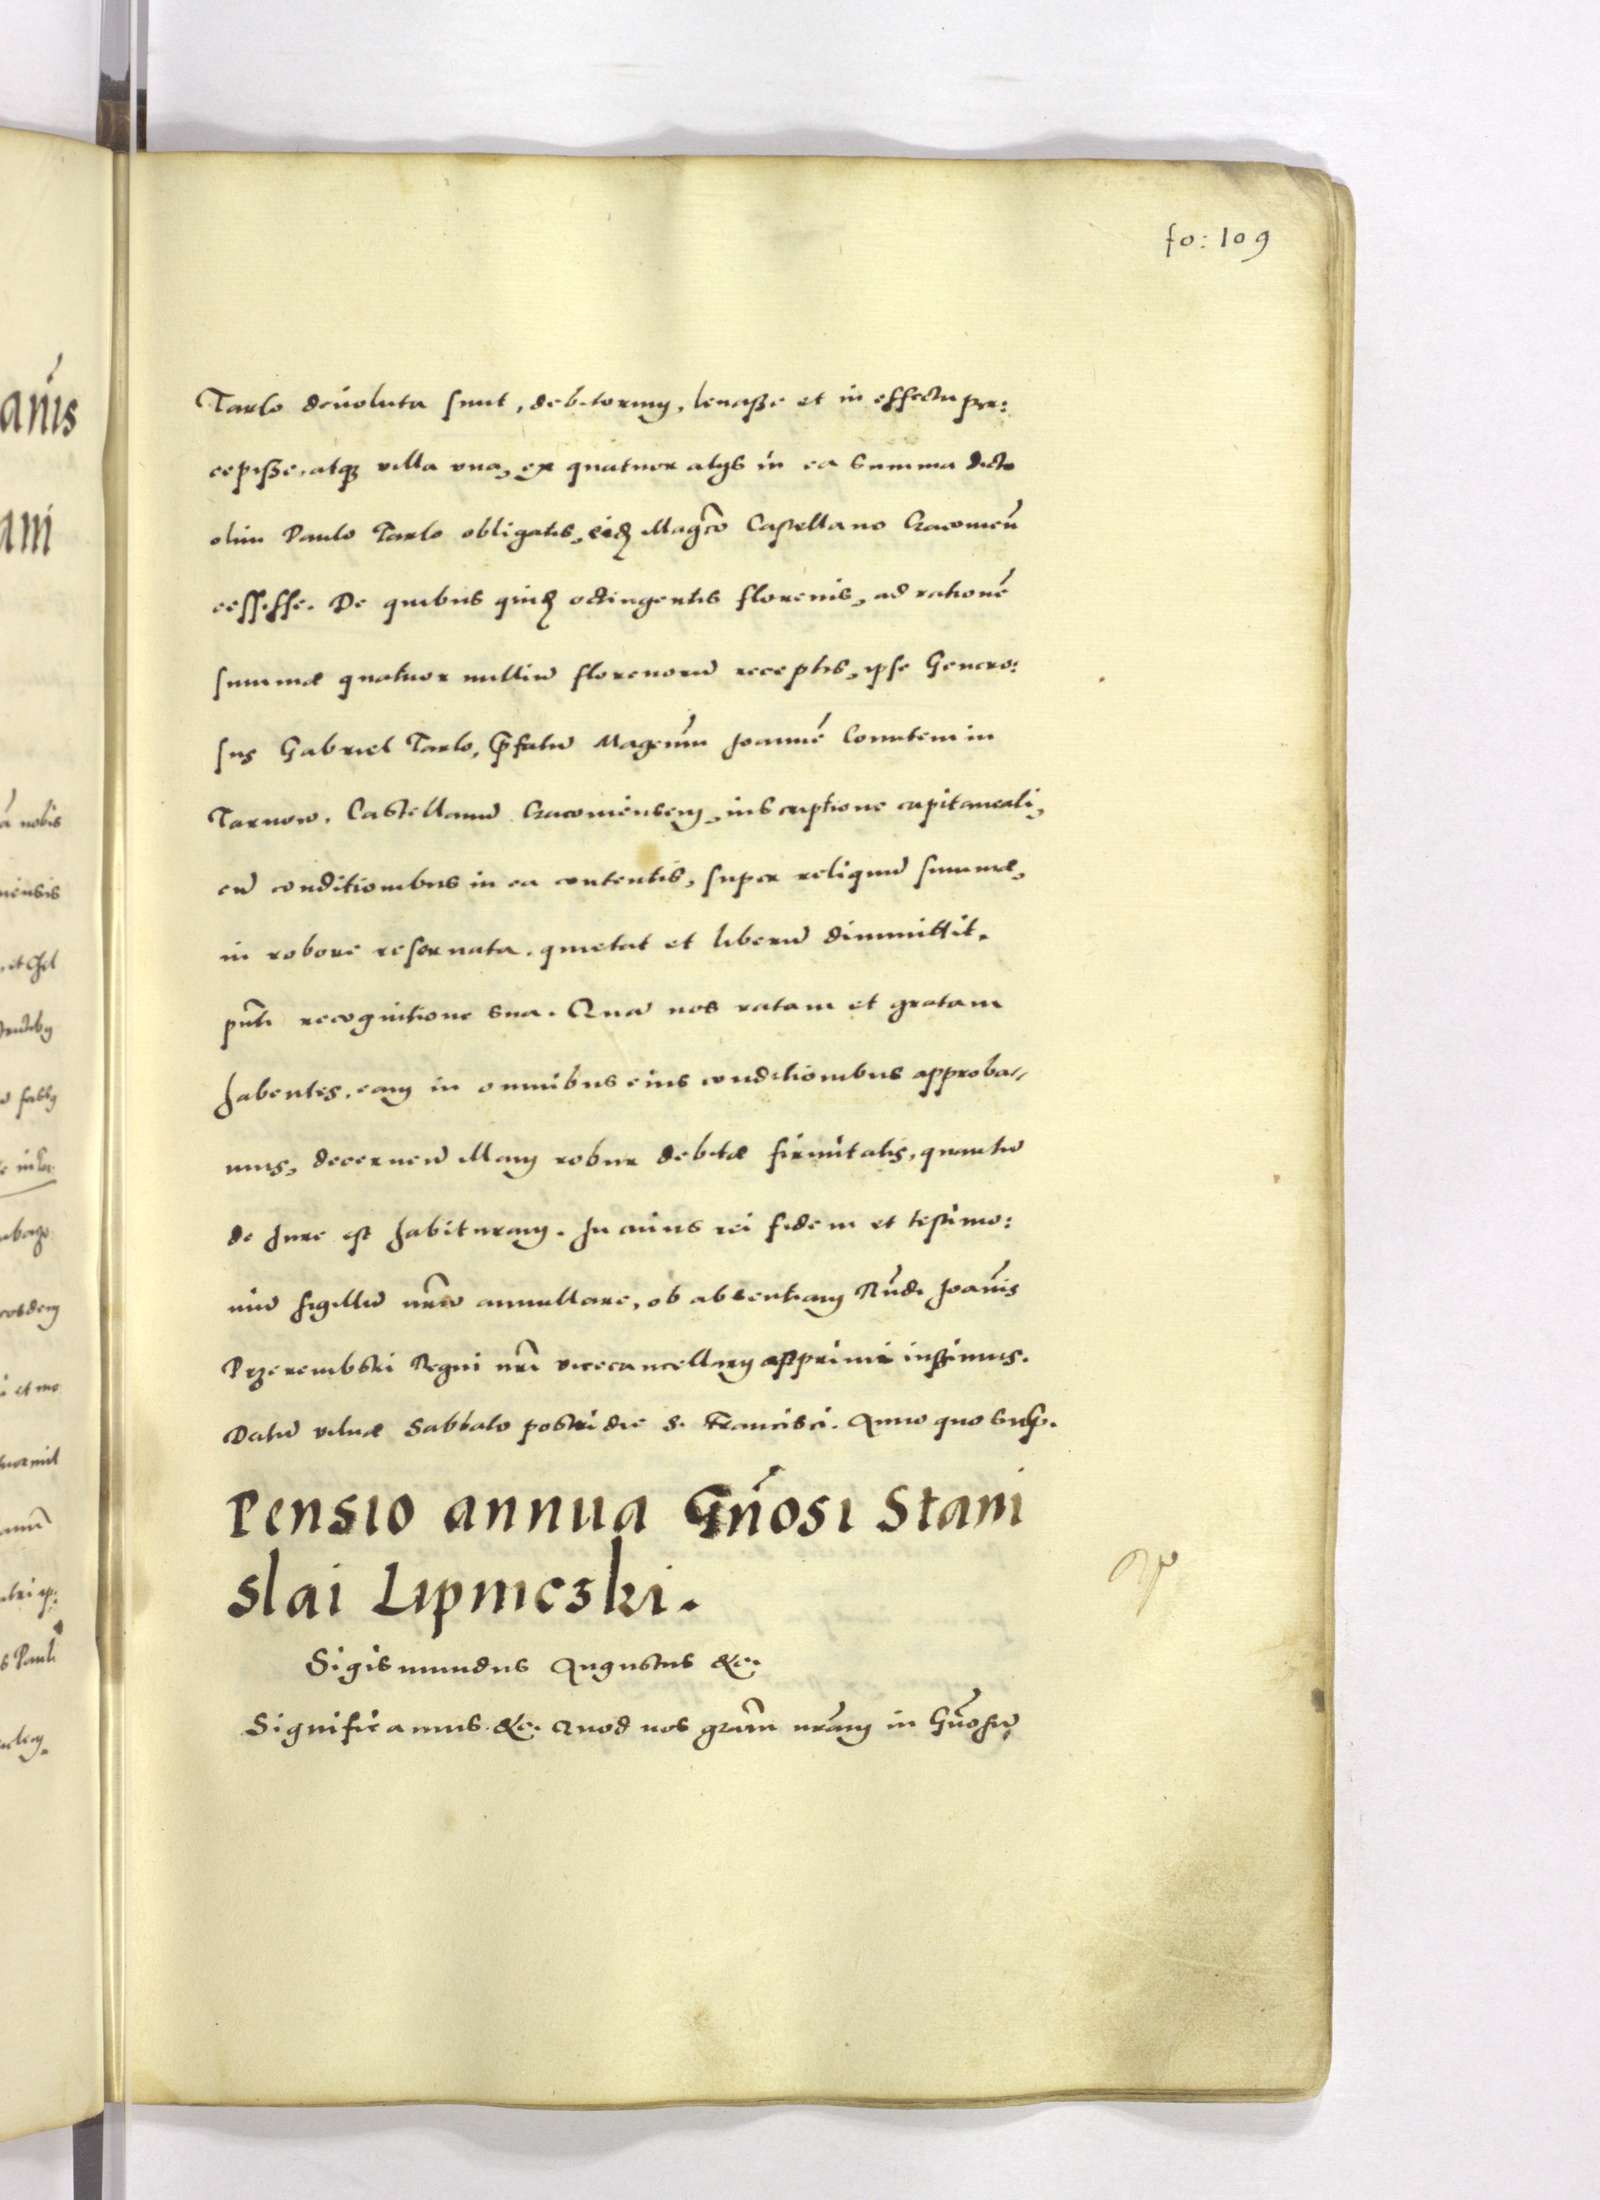 fo: 109
Tarlo devoluta sunt, debitorum, levasse et in effectu per:
cepisse, atqꝫ villa una, ex quatuor alijs in ea summa dicto
olim Paulo Tarlo obligatis, eidẽ Magco Castellano Cracovieñ
cessisse. De quibus quidẽ octingentis florenis, ad rationẽ
summæ quatuor milliũ florenorũ receptis, ipse Genero:
sus Gabriel Tarlo, p̃fatũ Magcum Joannẽ Comitem in
Tarnow, Castellanũ Cracoviensem, inscriptione capitaneali,
cũ conditionibus in ea contentis, super reliquũ summæ,
in robore reservata, quietat et liberũ dimmittit,
pñti recognitione sua. Quã nos ratam et gratam
habentes, eam in omnibus eius conditionibus approba//
mus, decernen̄ illam robur debitæ firmitatis, quantũ
de Jure est habituram. In cuius rei fidem et testimo:
niũ sigillũ nr̃m annullare, ob absentiam Rñdi Joañis
Przerembski Regni nr̃i vicecancellarij apprimi iussimus.
Datũ Vilnæ Sabbato postridie S. Francisci. Anno quo sup̃.
Pensio annua Gñosi Stani
slai Lipniczki.
Sigismundus Augustus &c.
Significamus &c. Quod nos gratiã nr̃am in Gñosũ